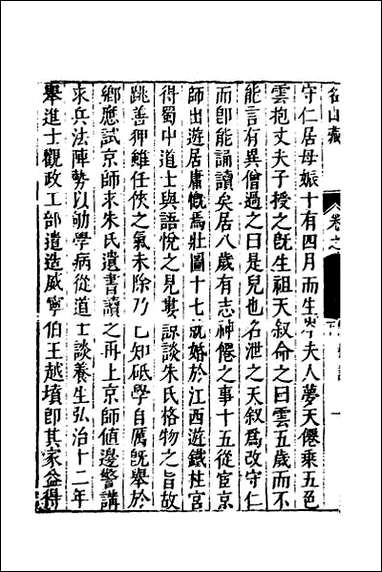 名山藏
卷之
守仁居母娠十有四月而生岑夫人夢天僊乘五色
雲抱丈夫子授之旣生祖天叙命之曰雲五歲而不
能言有異僧過之曰是兒也名泄之天叙爲改守仁
而卽能誦讀矣居八歲有志神僊之事十五從宦京
師出遊居庸慨焉壯圖十七就婚於江西遊鐵柱宮
得蜀中道士與語悅之見婁諒談朱氏格物之旨故
跳善狎雖任俠之氣未除乃已知砥學自厲旣舉於
鄉應試京師求朱氏遺書讀之再上京師値邊警講
求兵法陣勢以勛學病從道士談養生弘治十二年
舉進士觀政工部遣造威寧伯王越墳卽其家益得